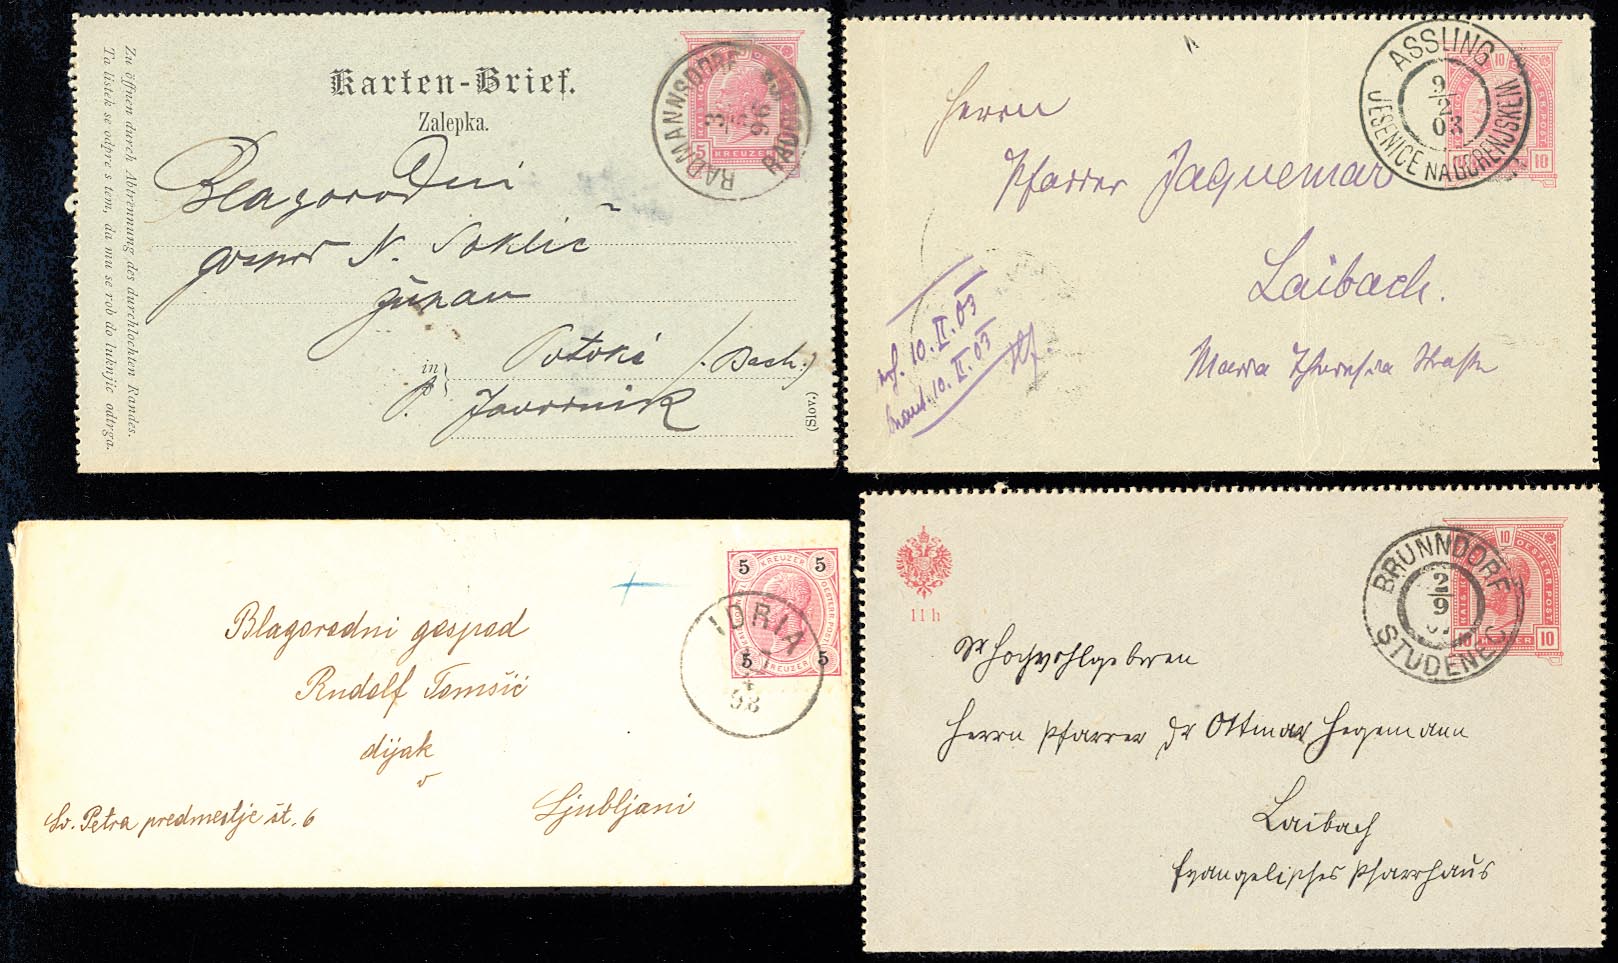 Karten-Brief.
Zalepka.
Zu öffnen durch Abtrennung des durchlochten Randes.
Ta listek se odpre s tem, da mu se rob do luknjic odtrga.
RADMANNSDORF
RADOVLJICA
5 KREUZER
Blagorodni
gospod N. Soklič
župan
in
Potoki
P. Javornik
(Slov.)
ASSLING
9/2
03
JESENICE NA GORENJSKEM
10
10
Herrn
Pfarrer Jaquemar
Laibach.
Maria Theresia Straße
10. II. 03
10. II. 03
5 KREUZER 5
5 KREUZER 5
OESTERR. POST
IDRIA
98
Blagorodni gospod
Rudolf Tomšič
dijak
v
Ljubljani
Sv. Petra predmestje št. 6
11 h
BRUNNDORF
2/9
STUDENEC
10 OESTERR. POST
10
Sr Hochwohlgeboren
Herrn Pfarrer Dr Ottmar Hegemann
Laibach
Evangelisches Pfarrhaus